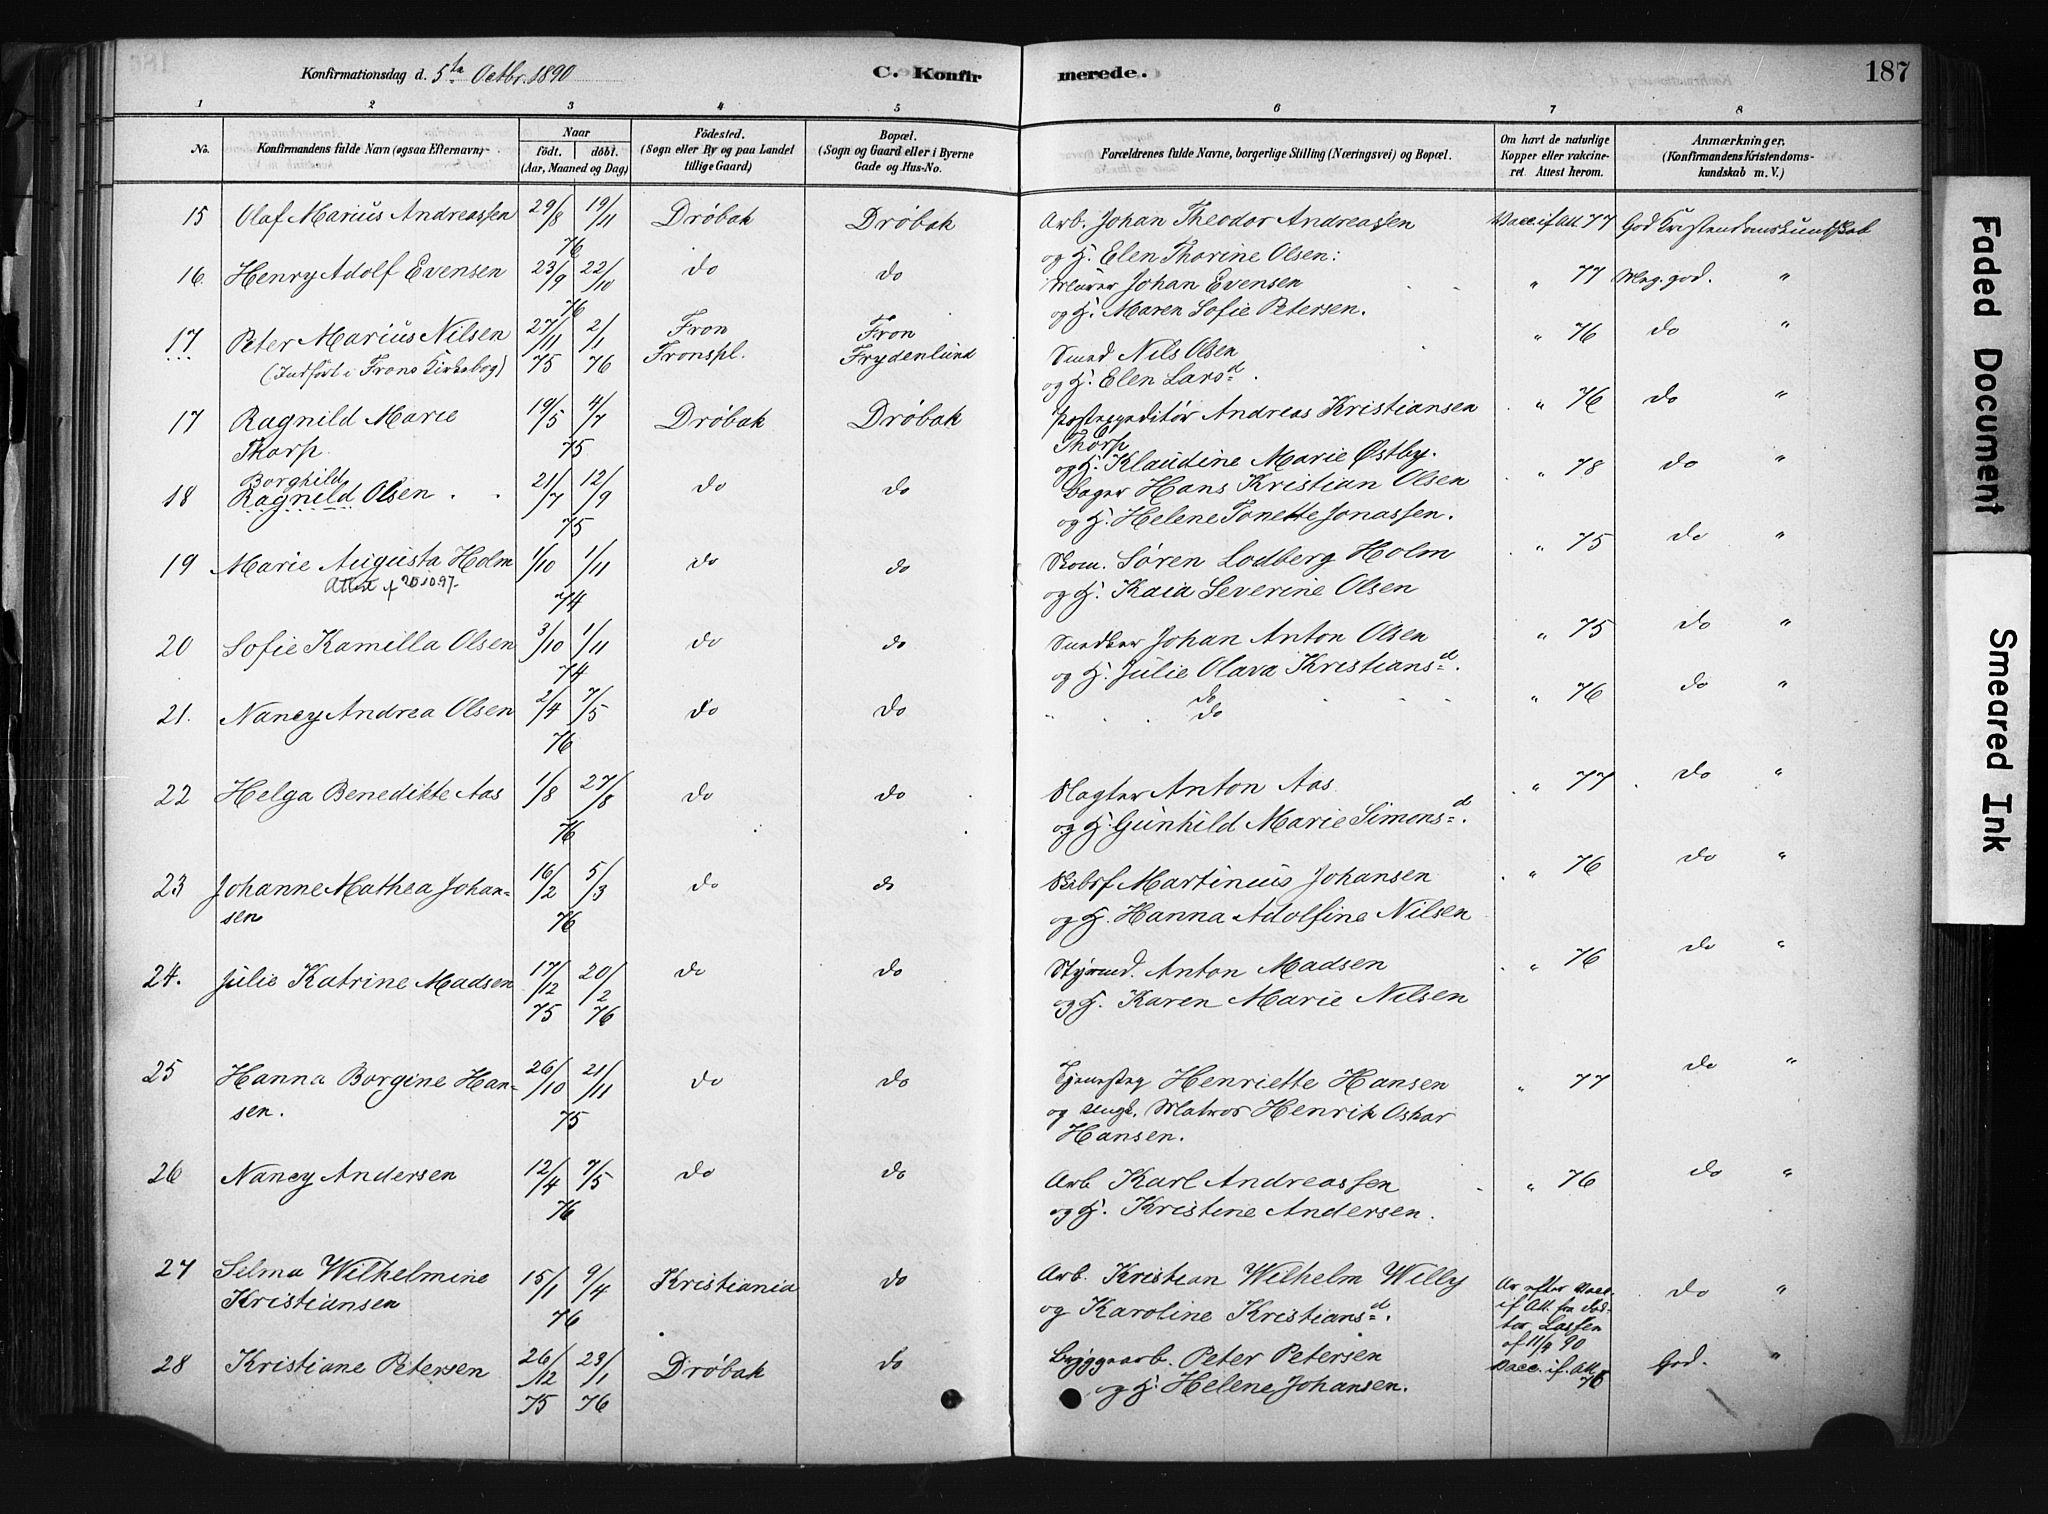 Konfirmationsdag d. 5te Octbr. 1890
C. Konfirmerede.
187
1 2 3 4 5 6 7 8
No.
Konfirmandens fulde Navn (ogsaa Efternavn).
Naar
födt. döbt.
(Aar, Maaned og Dag)
Födested.
(Sogn eller By og paa Landet tillige Gaard)
Bopæl.
(Sogn og Gaard eller i Byerne Gade og Hus-No.
Forældrenes fulde Navne, borgerlige Stilling (Næringsvei) og Bopæl.
Om havt de naturlige Kopper eller vakcineret. Attest herom.
Anmærkninger.
(Konfirmandens Kristendomskundskab m. V.)
15 Olaf Marius Andreassen 29/8 19/11 76 Drøbak Drøbak Arb. Johan Theodor Andreassen Vacc. if. Att. 77 God Kristendomskundskab
og H. Elen Thorine Olsen:
16. Henry Adolf Evensen 23/9 22/10 76 do do Murer Johan Evensen " 77 Meg. god. "
og H. Maren Sofie Petersen.
17 Peter Marius Nilsen 27/11 2/1 Fron Fron Smed Nils Olsen " 76 do "
(Indført i Frons Kirkebog) 75 76 Fronspl. Frydenlund og H. Elen Larsd.
17 Ragnild Marie 19/5 4/7 Drøbak Drøbak Postexpeditør Andreas Kristiansen " 76 do "
Thorp. 75 Thorp
og H. Klaudine Marie Østby.
Borghild
18 Ragnild Olsen 21/7 12/9 do do Bager Hans Kristian Olsen " 78 do "
75 og H. Helene Tonette Jonassen.
19 Marie Augusta Holm 1/10 1/11 do do Skom. Søren Lodberg Holm " 75 do "
Attest 20.10.97. 74 og H. Kaia Severine Olsen
20 Sofie Kamilla Olsen 3/10 1/11 do do Snedker Johan Anton Olsen " 75 do "
74 og H. Julie Olava Kristiansd.
21. Nancy Andrea Olsen 2/4 7/5 do do " do " 76 do "
76 do
22 Helga Benedikte Aas 1/8 27/8 do do Slagter Anton Aas " 77 do "
76 og H. Gunhild Marie Simonsd.
23 Johanne Mathea Johan- 16/2 5/3 do do Skibsf Martinius Johansen " 76 do "
sen 76 og H. Hanna Adolfine Nilsen
24. Julie Katrine Madsen 17/12 20/2 do do Styrmd. Anton Madsen " 76 do "
75 76 og H. Karen Marie Nilsen
25 Hanna Borgine Han- 26/10 21/11 do do Tjenestep Henriette Hansen " 77 do "
sen. 75 og ungk. Matros Henrik Oskar
Hansen.
26 Nancy Andersen 12/4 7/5 do do Arb Karl Andreassen " 76 do "
76 og H. Kristine Andersen.
27 Selma Wilhelmine 15/1 9/4 Kristiania do Arb. Kristian Wilhelm Willy Ar efter Vacc. do "
Kristiansen 76 og Karoline Kristiansd. if Att. fra Doktor Lassen
af 11/9 90
28 Kristiane Petersen 26/12 23/1 Drøbak do Byggearb. Peter Petersen Vacc. if. Att. God. "
75 76 og H. Helene Johansen. 76
Faded Document
Smeared Ink